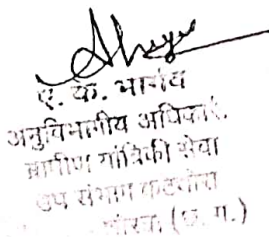 ए. के. भार्गव
अनुविभागीय अधिकारी
ग्रामीण यांत्रिकी सेवा
उप संभाग कटघोरा
कोरबा (छ. ग.)